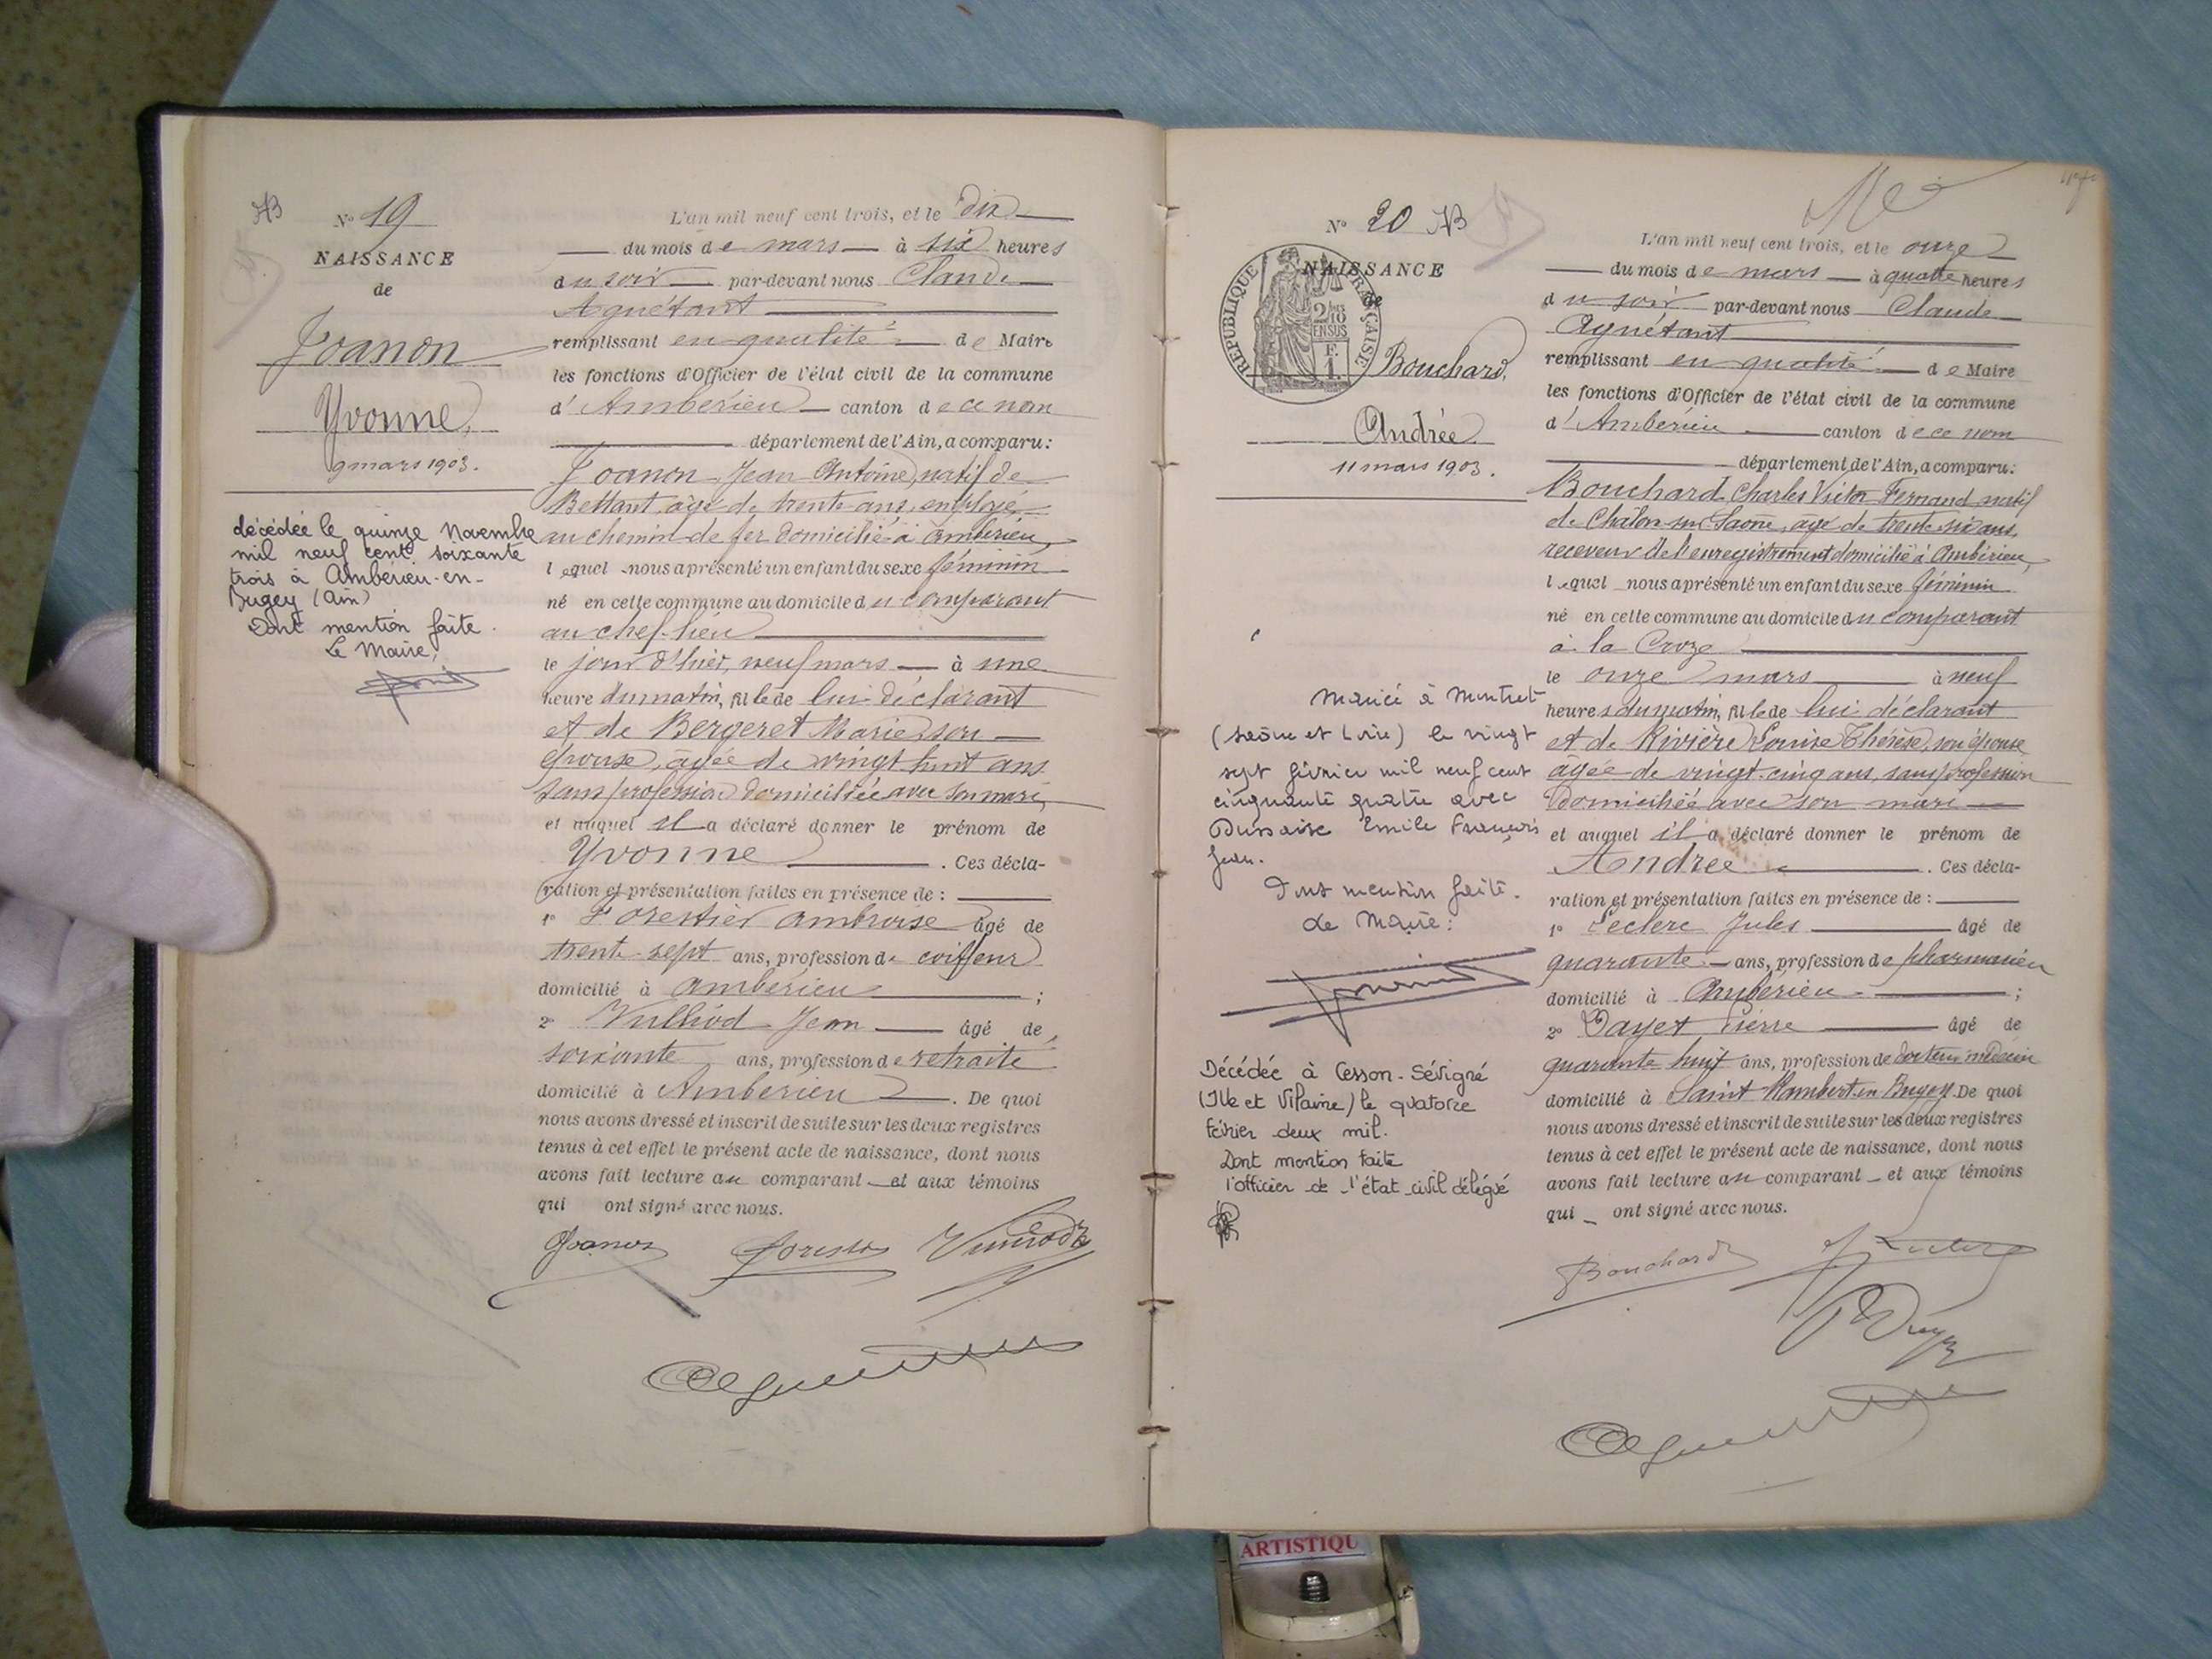 AB
N° 19
NAISSANCE
de
Joanon
Yvonne
9 mars 1903.
décédée le quinze Novembre
mil neuf cent soixante
trois à Ambérieu-en-
Bugey (Ain)
Dont mention faite.
Le Maire,
L'an mil neuf cent trois, et le dix
du mois de mars à six heures
du soir par-devant nous Claude
Aguétant
remplissant en qualité de Maire
les fonctions d'Officier de l'état civil de la commune
d'Ambérieu canton de ce nom
département de l'Ain, a comparu:
Joanon Jean Antoine, natif de
Bettant, âgé de trente ans, employé
au chemin de fer domicilié à Ambérieu,
lequel nous a présenté un enfant du sexe féminin
né en cette commune au domicile du comparant
au chef-lieu
le jour d'hier, neuf mars à une
heure du matin, fille de lui déclarant
et de Bergeret Marie, son
épouse, âgée de vingt huit ans
sans profession domiciliée avec son mari,
et auquel il a déclaré donner le prénom de
Yvonne. Ces décla-
ration et présentation faites en présence de :
1° Forestier Ambroise âgé de
trente-sept ans, profession de coiffeur
domicilié à Ambérieu ;
2° Vulliod Jean âgé de
soixante ans, profession de retraité
domicilié à Ambérieu. De quoi
nous avons dressé et inscrit de suite sur les deux registres
tenus à cet effet le présent acte de naissance, dont nous
avons fait lecture au comparant et aux témoins
qui ont signé avec nous.
Joanon
N° 20 AB
NAISSANCE
de
REPUBLIQUE FRANÇAISE
2/10 EN SUS
F.
1.
Bouchard,
Andrée
11 mars 1903.
Mariée à Montret
(Saône et Loire) le vingt
sept février mil neuf cent
cinquante quatre avec
Emile François
Jean.
Dont mention faite.
Le Maire:
Décédée à Cesson-Sévigné
(Ille et Vilaine) le quatorze
février deux mil.
Dont mention faite
l'officier de l'état civil délégué
L'an mil neuf cent trois, et le onze
du mois de mars à quatre heures
du soir par-devant nous Claude
Aguétant
remplissant en qualité de Maire
les fonctions d'Officier de l'état civil de la commune
d'Ambérieu canton de ce nom
département de l'Ain, a comparu:
Bouchard Charles Victor Fernand natif
de Châlon-sur-Saône, âgé de trente six ans,
receveur de l'enregistrement domicilié à Ambérieu,
lequel nous a présenté un enfant du sexe féminin
né en cette commune au domicile du comparant
à la Croze
le onze mars à neuf
heures du matin, fille de lui déclarant
et de Rivière Louise Thérèse, son épouse
âgée de vingt-cinq ans, sans profession
domiciliée avec son mari
et auquel il a déclaré donner le prénom de
Andrée. Ces décla-
ration et présentation faites en présence de :
1° Leclerc Jules âgé de
quarante ans, profession de pharmacien
domicilié à Ambérieu ;
2° Pierre âgé de
quarante huit ans, profession de docteur médecin
domicilié à Saint Rambert en Bugey. De quoi
nous avons dressé et inscrit de suite sur les deux registres
tenus à cet effet le présent acte de naissance, dont nous
avons fait lecture au comparant et aux témoins
qui ont signé avec nous.
Bouchard
ARTISTIQU